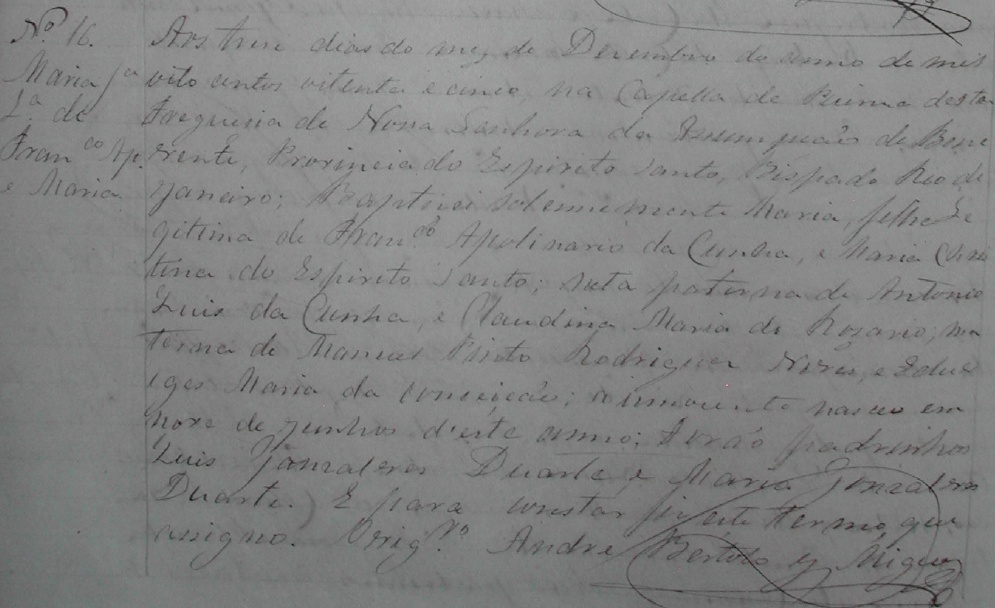 Nº 16.
Maria
L.ª de
Fran.co Ap.
e Maria
Aos treze dias do mez de Dezembro do anno de mil
oito centos oitenta e cinco, na Capella de Piuma desta
Freguezia de Nossa Senhora da Assumpção de Bene
vente, Provincia do Espirito Santo, Bispado Rio de
Janeiro; Baptisei solemnemente Maria, filha Le
gitima de Fran.co Apolinario da Cunha, e Maria Chris
tina do Espirito Santo; neta paterna de Antonio
Luis da Cunha, e Claudina Maria do Rozario; ma
terna de Manuel Pinto Rodrigues Neves, e Edu
iges Maria da Conceição; a innocente nasceu em
nove de Junho d'este anno; Forão padrinhos
Luis Gonzalves Duarte, e Maria Gonzalves
Duarte. E para constar fiz este termo, que
assigno. Vrig.ro André Bertolo y Miguez